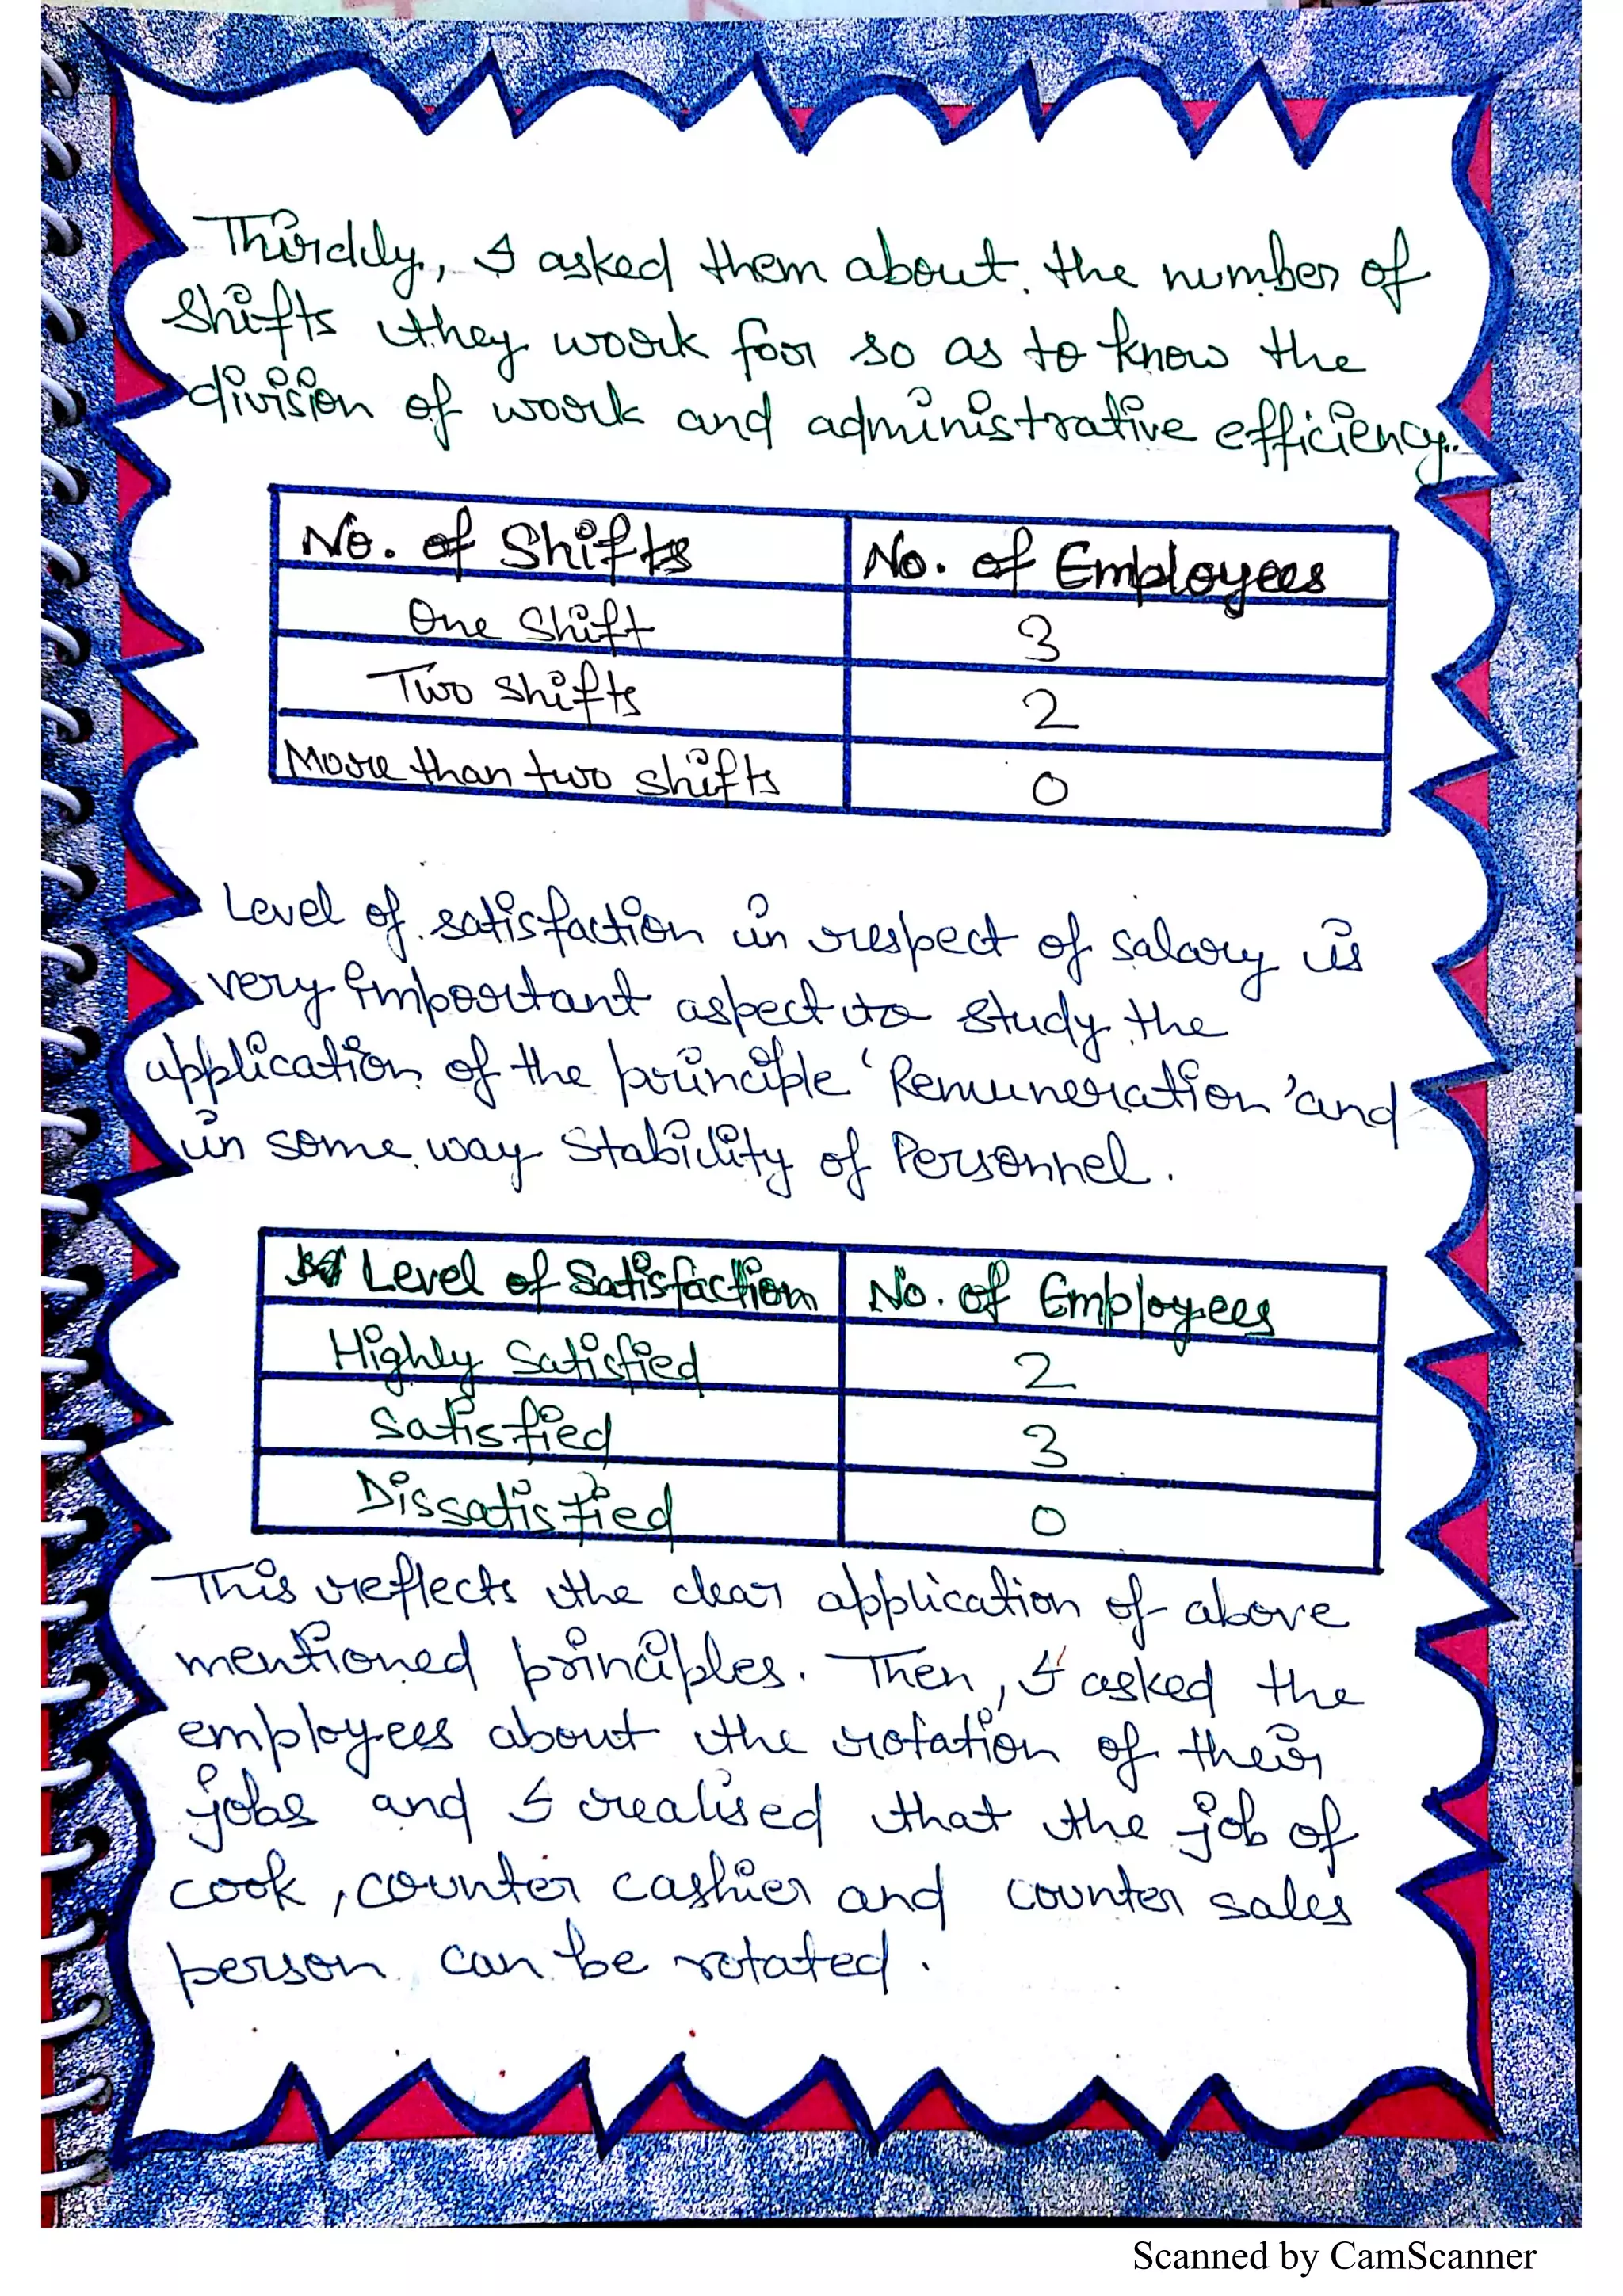 Thirdly, I asked them about the number of
shifts they work for so as to know the
division of work and administrative efficiency.
No. of Shifts No. of Employees
One Shift 3
Two shifts 2
More than two shifts 0
Level of satisfaction in respect of salary is
very important aspect to study the
application of the principle 'Remuneration' and
in some way Stability of Personnel.
Level of Satisfaction No. of Employees
Highly Satisfied 2
Satisfied 3
Dissatisfied 0
This reflects the clear application of above
mentioned principles. Then, I asked the
employees about the rotation of their
jobs and I realised that the job of
cook, counter cashier and counter sales
person can be rotated.
Scanned by CamScanner